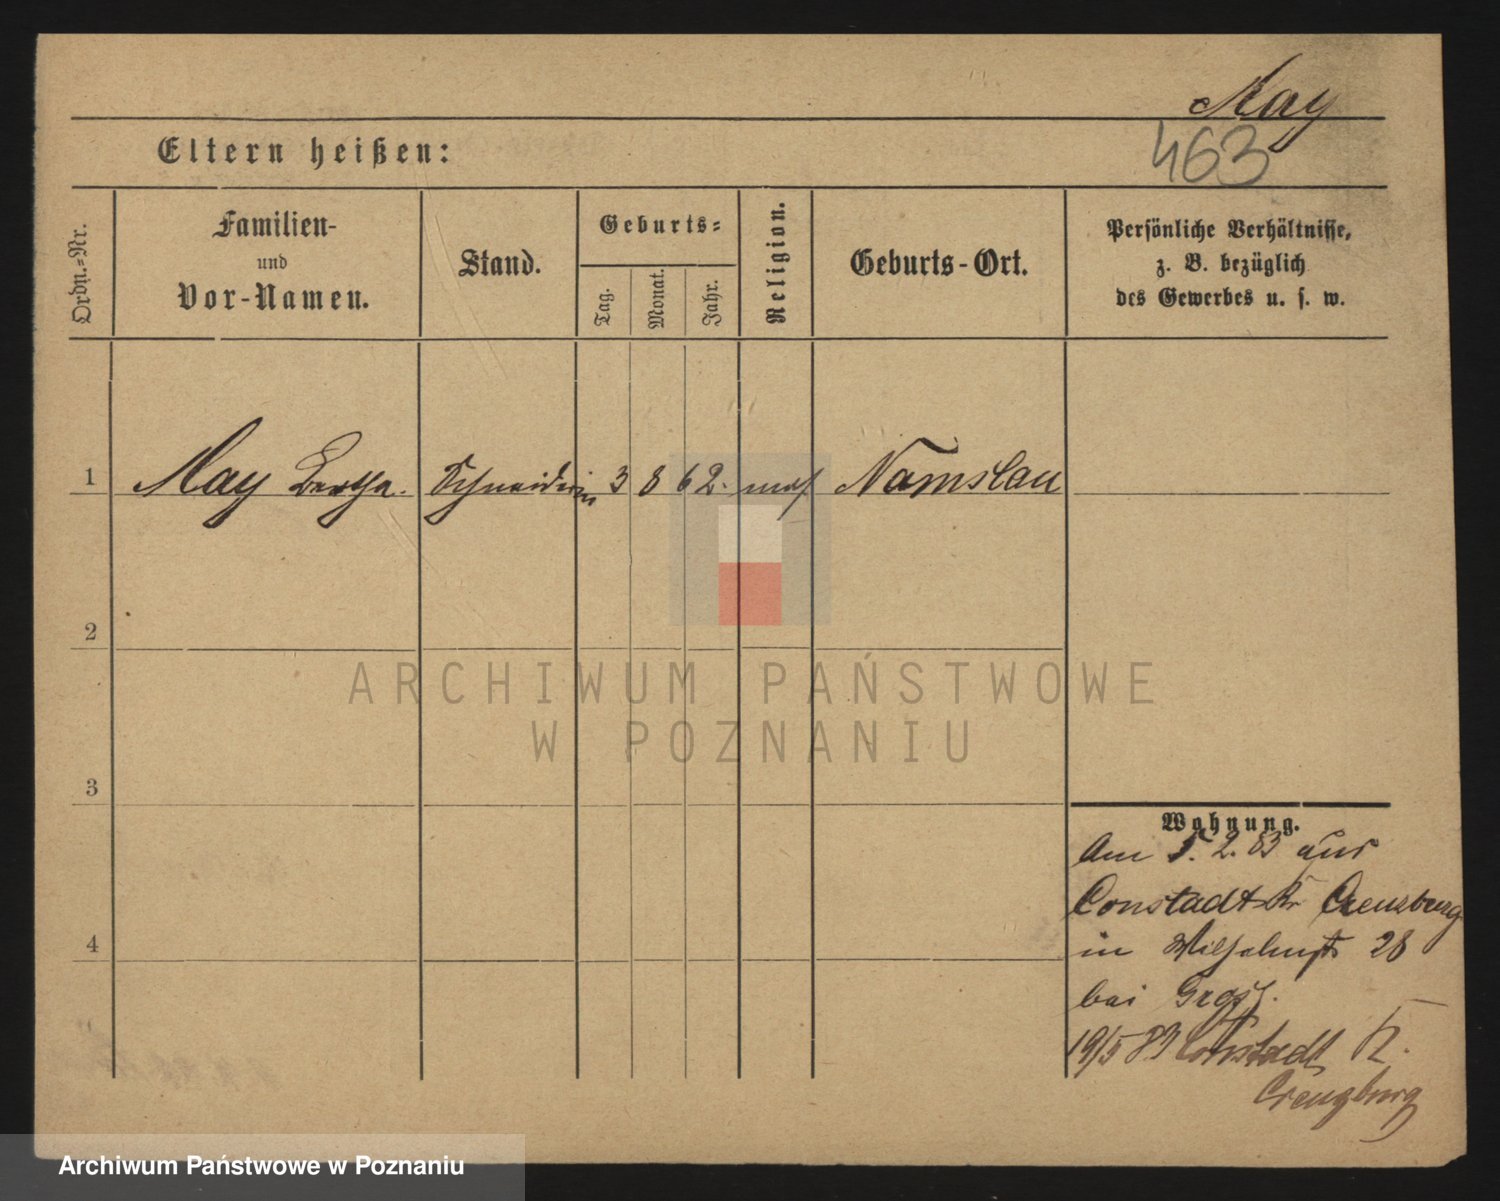 May
463
Eltern heißen:
Ordn.-Nr.
Familien-
und
Vor-Namen.
Stand.
Geburts-
Tag.
Monat.
Jahr.
Religion.
Geburts-Ort.
Persönliche Verhältnisse,
z. B. bezüglich
des Gewerbes u. s. w.
1 May Bertha. Schneiderin 3 8 62. Namslau
2
ARCHIWUM PAŃSTWOWE
W POZNANIU
3
Wohnung.
Am 5. 2. 83 aus
Constadt Kr Creuzburg
in Wilhelmstr 28
bei
4
19/5 83 Constadt K.
Creuzburg
Archiwum Państwowe w Poznaniu